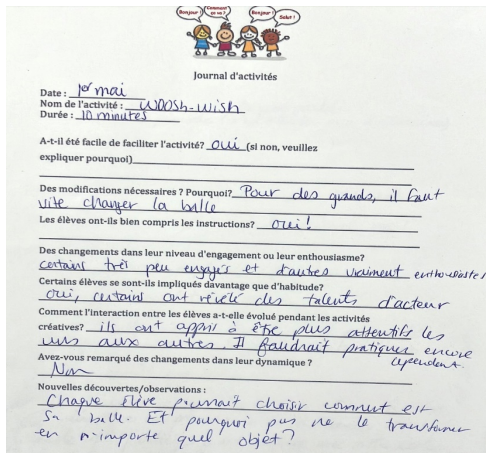 Bonjour !
Comment ça va ?
Bonjour !
Salut !
Journal d'activités
Date : 1er mai
Nom de l'activité : WOOSH-WISH
Durée : 10 minutes
A-t-il été facile de faciliter l'activité? oui (si non, veuillez
expliquer pourquoi)
Des modifications nécessaires ? Pourquoi? Pour des grands, il faut
vite changer la balle
Les élèves ont-ils bien compris les instructions? oui !
Des changements dans leur niveau d'engagement ou leur enthousiasme?
certains très peu engagés et d'autres vraiment enthousiastes
Certains élèves se sont-ils impliqués davantage que d'habitude?
oui, certains ont révélé des talents d'acteur
Comment l'interaction entre les élèves a-t-elle évolué pendant les activités
créatives? ils ont appris à être plus attentifs les
uns aux autres. Il faudrait pratiquer encore
cependant.
Avez-vous remarqué des changements dans leur dynamique ?
Non
Nouvelles découvertes/observations :
Chaque élève pourrait choisir comment est
sa balle. Et pourquoi pas ne le transformer
en n'importe quel objet?